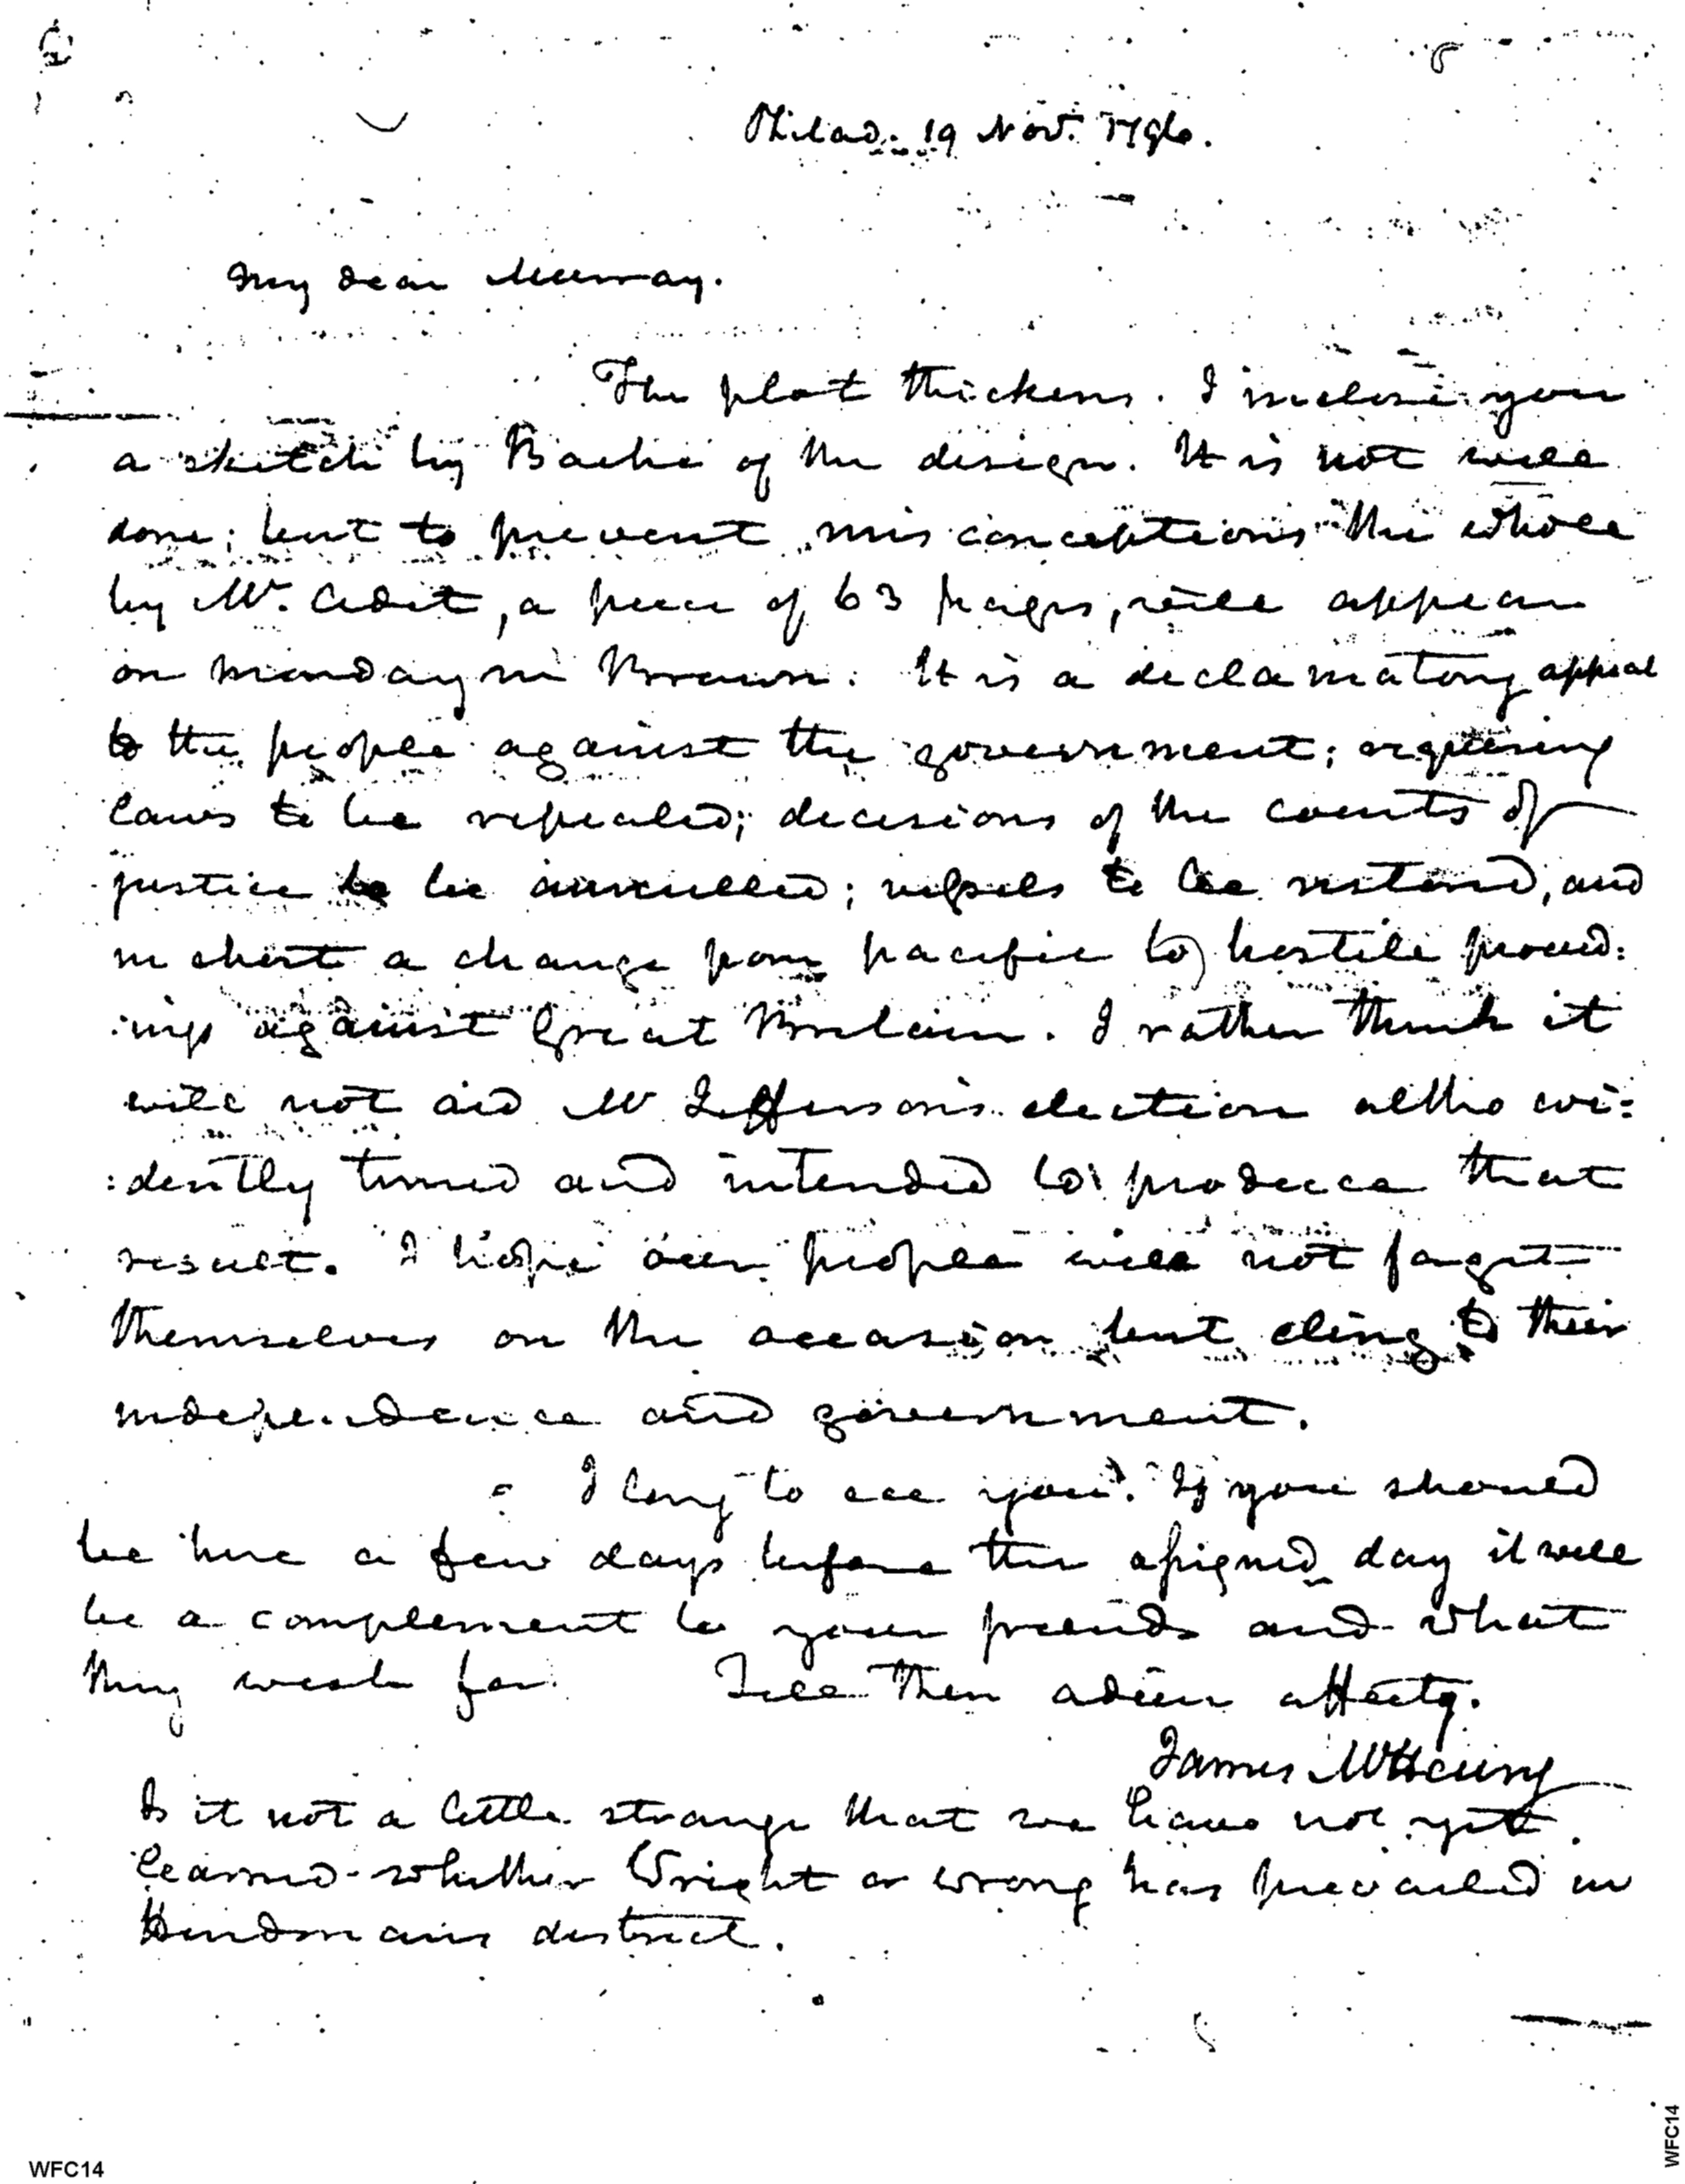 Philad: 19 Nov: 1796.
My dear Murray.
The plot thickens. I inclose you
a sketch by Bache of the design. It is not well
done; but to prevent misconceptions the whole
by Mr. Adet, a piece of 63 pages, will appear
on monday in Brown. It is a declamatory appeal
to the people against the government; requiring
laws to be repealed; decisions of the courts of
justice to be annulled; vessels to be restored, and
in short a change from pacific to hostile proceed:
:ings against Great Britain. I rather think it
will not aid Mr Jefferson's election altho evi:
:dently timed and intended to produce that
result. I hope our people will not forget
themselves on the occasion but cling to their
independence and government.
I long to see you. If you should
be here a few days before the assigned day it will
be a complement to your friends and what
they wish for. Till then adieu affecty.
James McHenry
Is it not a little strange that we have not yet
learned whether Wright or wrong has prevailed in
Hindmans district.
WFC14
WFC14